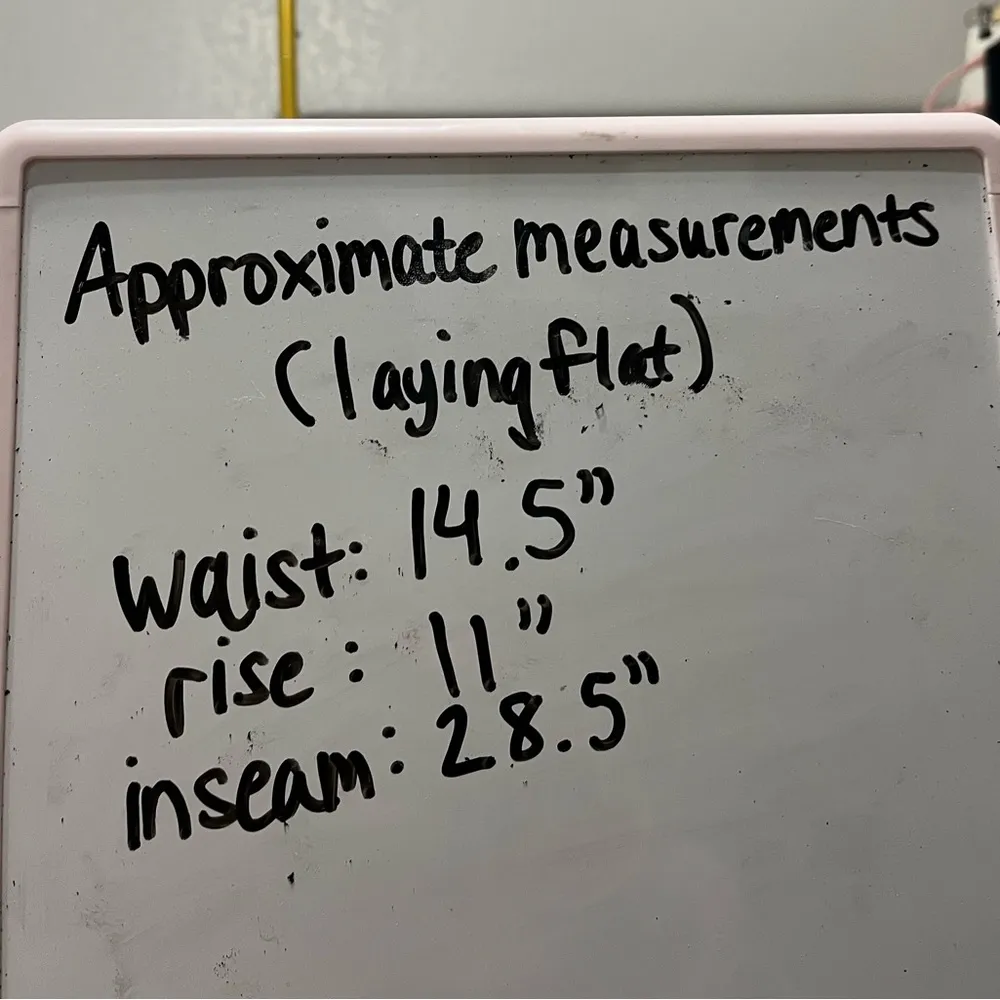 Approximate measurements
(laying flat)
waist: 14.5"
rise: 11"
inseam: 28.5"